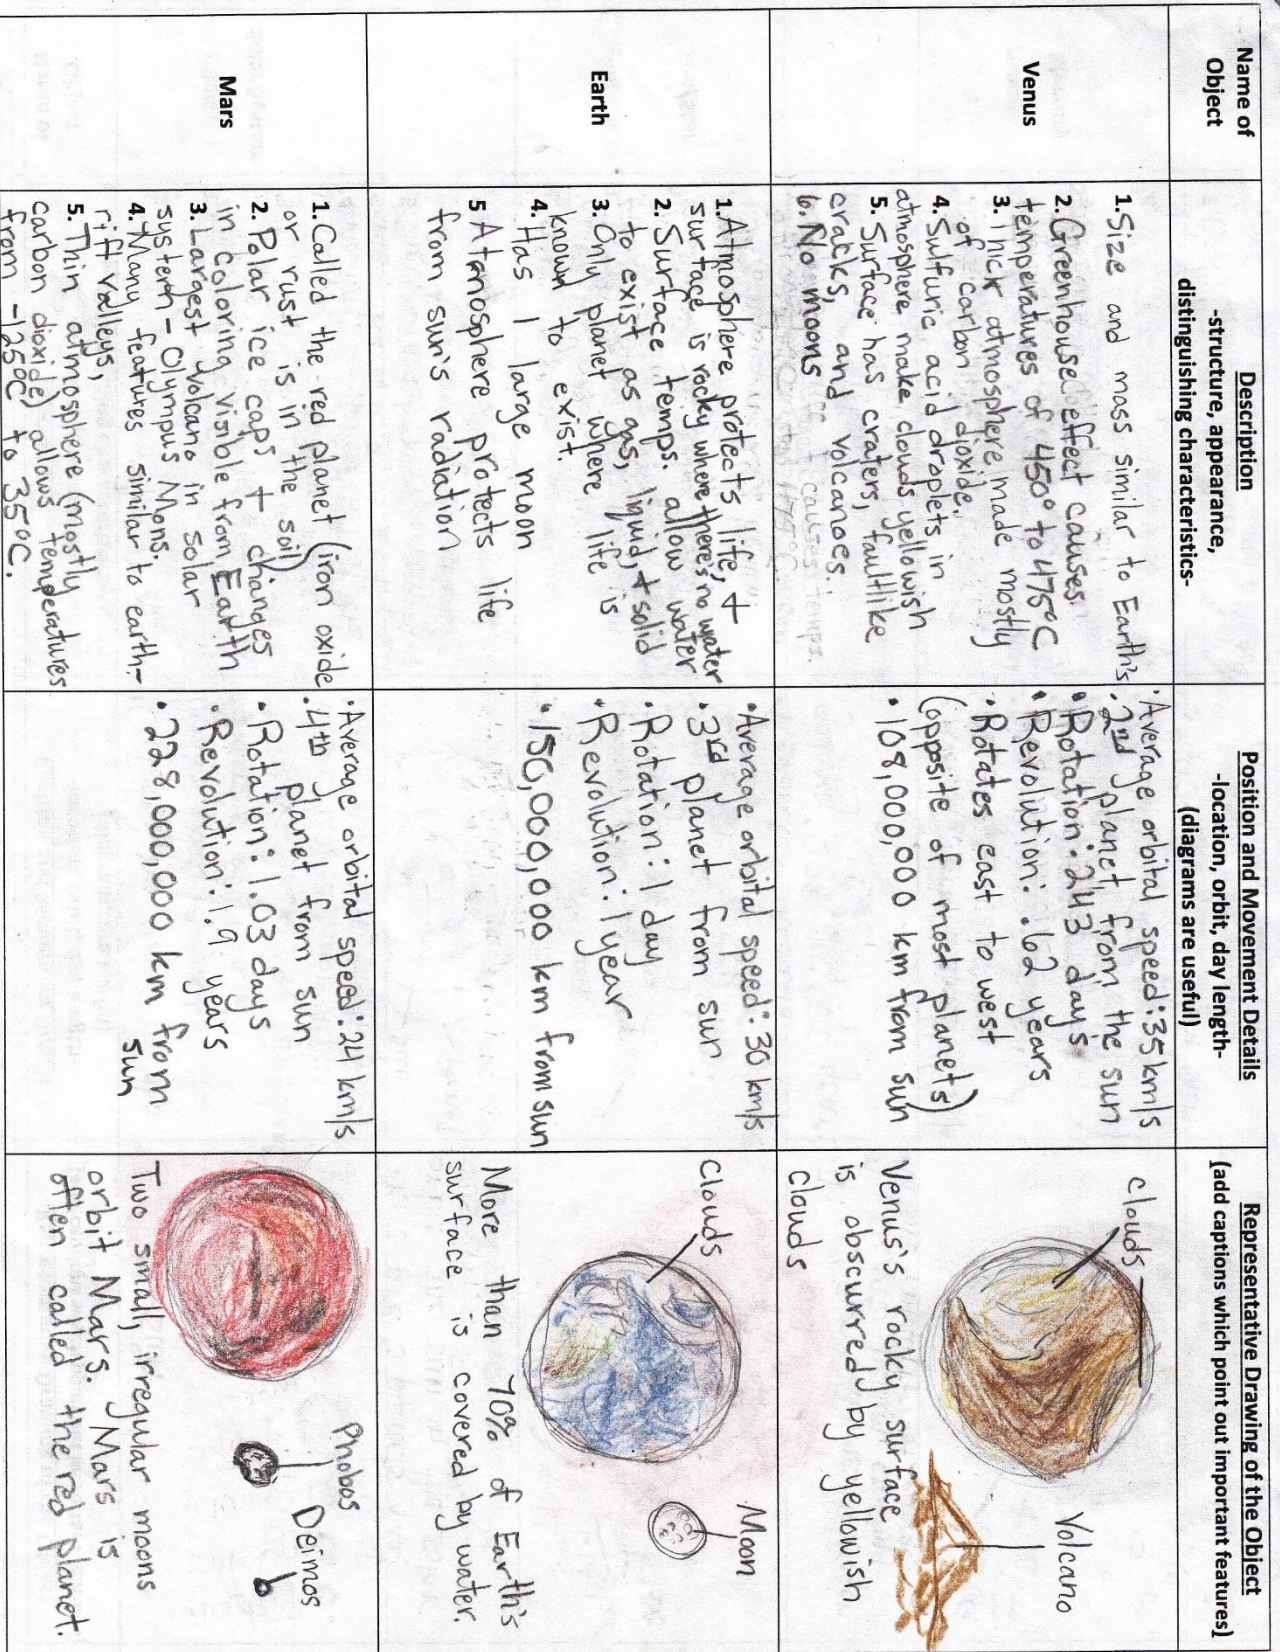 Name of
Object
Description
-structure, appearance,
distinguishing characteristics-
Position and Movement Details
-location, orbit, day length-
(diagrams are useful)
Representative Drawing of the Object
(add captions which point out important features)
Venus
1. Size and mass similar to Earth's
2. Greenhouse effect causes
temperatures of 450° to 475°C
3. Thick atmosphere made mostly
of carbon dioxide.
4. Sulfuric acid droplets in
atmosphere make clouds yellowish
5. Surface has craters, faultlike
cracks, and volcanoes.
6. No moons
• Average orbital speed: 35 km/s
• 2nd planet from the sun
• Rotation: 243 days
• Revolution: .62 years
• Rotates east to west
(opposite of most planets)
• 108,000,000 km from sun
clouds
Volcano
Venus's rocky surface
is obscurred by yellowish
clouds
Earth
1. Atmosphere protects life, +
surface is rocky where there's no water
2. Surface temps. allow water
to exist as gas, liquid, + solid
3. Only planet where life is
known to exist.
4. Has 1 large moon
5 Atmosphere protects life
from sun's radiation
• Average orbital speed: 30 km/s
• 3rd planet from sun
• Rotation: 1 day
• Revolution: 1 year
• 150,000,000 km from sun
Clouds
Moon
More than 70% of Earth's
surface is covered by water.
Mars
1. Called the red planet (iron oxide
or rust is in the soil)
2. Polar ice caps + changes
in coloring visible from Earth
3. Largest volcano in solar
system - Olympus Mons.
4. Many features similar to earth-
rift valleys,
5. Thin atmosphere (mostly
carbon dioxide) allows temperatures
from -125°C to 35°C.
• Average orbital speed: 24 km/s
• 4th planet from sun
• Rotation: 1.03 days
• Revolution: 1.9 years
• 228,000,000 km from
sun
Phobos
Deimos
Two small, irregular moons
orbit Mars. Mars is
often called the red planet.